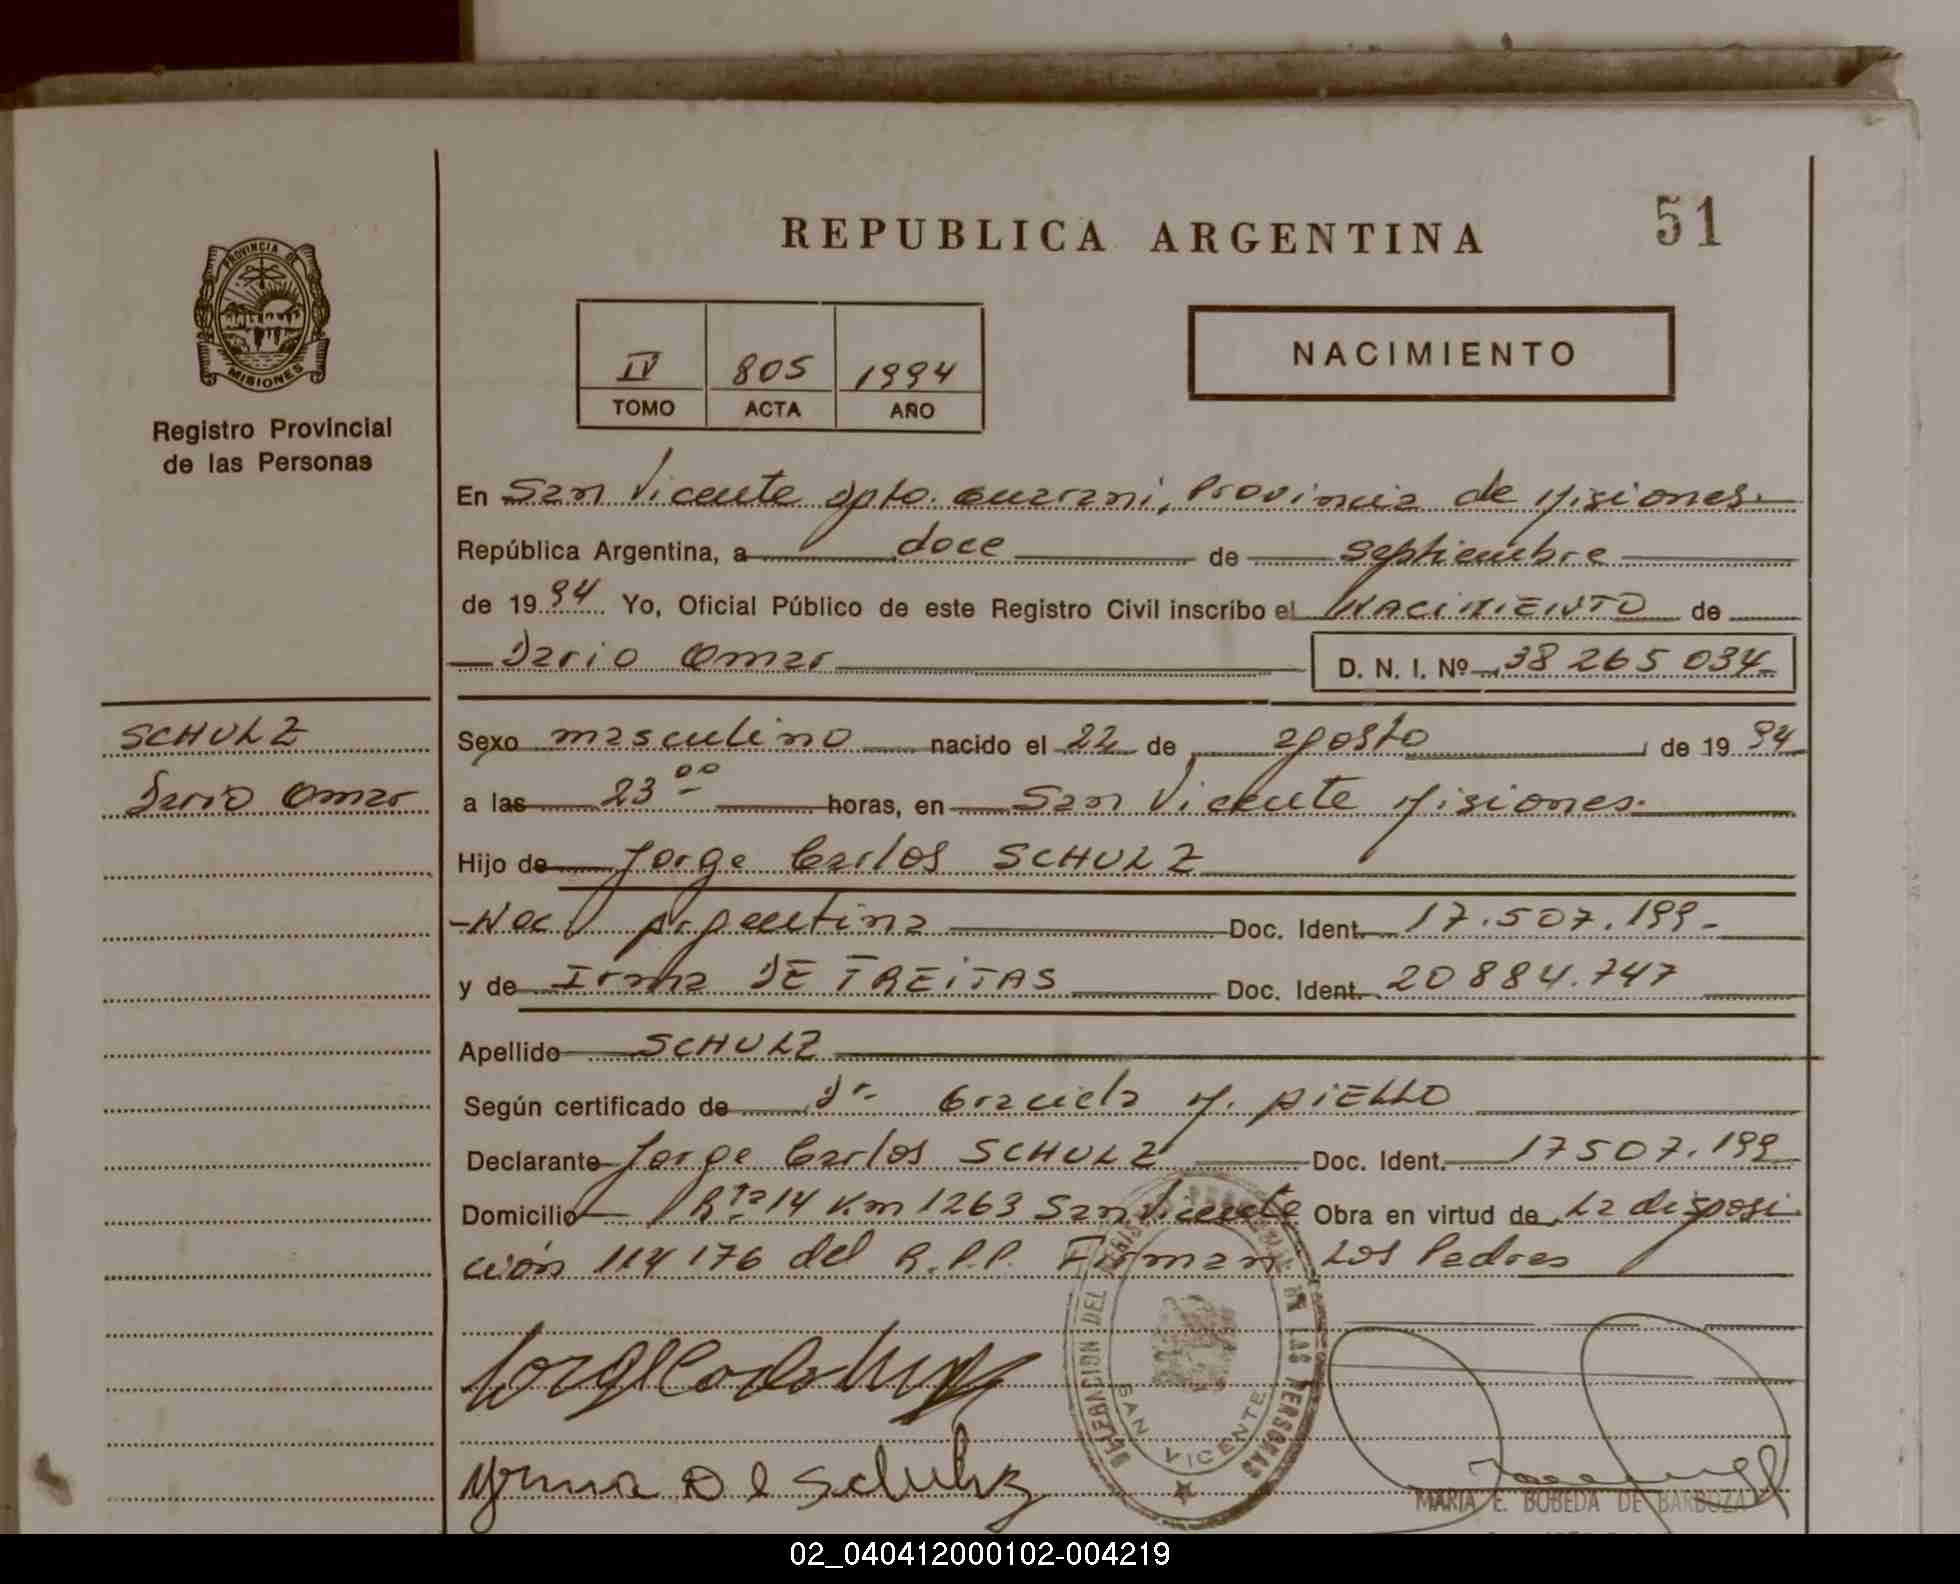 REPUBLICA ARGENTINA
51
PROVINCIA DE
MISIONES
Registro Provincial
de las Personas
IV 805 1994
TOMO ACTA AÑO
NACIMIENTO
En San Vicente Dpto. Guarani, Provincia de Misiones.
República Argentina, a doce de septiembre
de 1994 Yo, Oficial Público de este Registro Civil inscribo el NACIMIENTO de
Dario Omar D. N. I. Nº 38 265 034
SCHULZ
Dario Omar
Sexo masculino nacido el 22 de agosto de 1994
a las 23 00 horas, en San Vicente Misiones.
Hijo de Jorge Carlos SCHULZ
Nac Argentina Doc. Ident. 17.507.199-
y de Irma DE FREITAS Doc. Ident. 20884.747
Apellido SCHULZ
Según certificado de Dra Graciela M. AIELLO
Declarante Jorge Carlos SCHULZ Doc. Ident. 17507.199
Domicilio Rta 14 Km 1263 San Vicente Obra en virtud de La disposi
ción 114 176 del R.P.P. Firman Los Padres
DELEGACION DEL REGISTRO PROVINCIAL DE LAS PERSONAS
SAN VICENTE
Yrma D e Schulz
MARIA E. BOBEDA DE BARBOZA
02_040412000102-004219